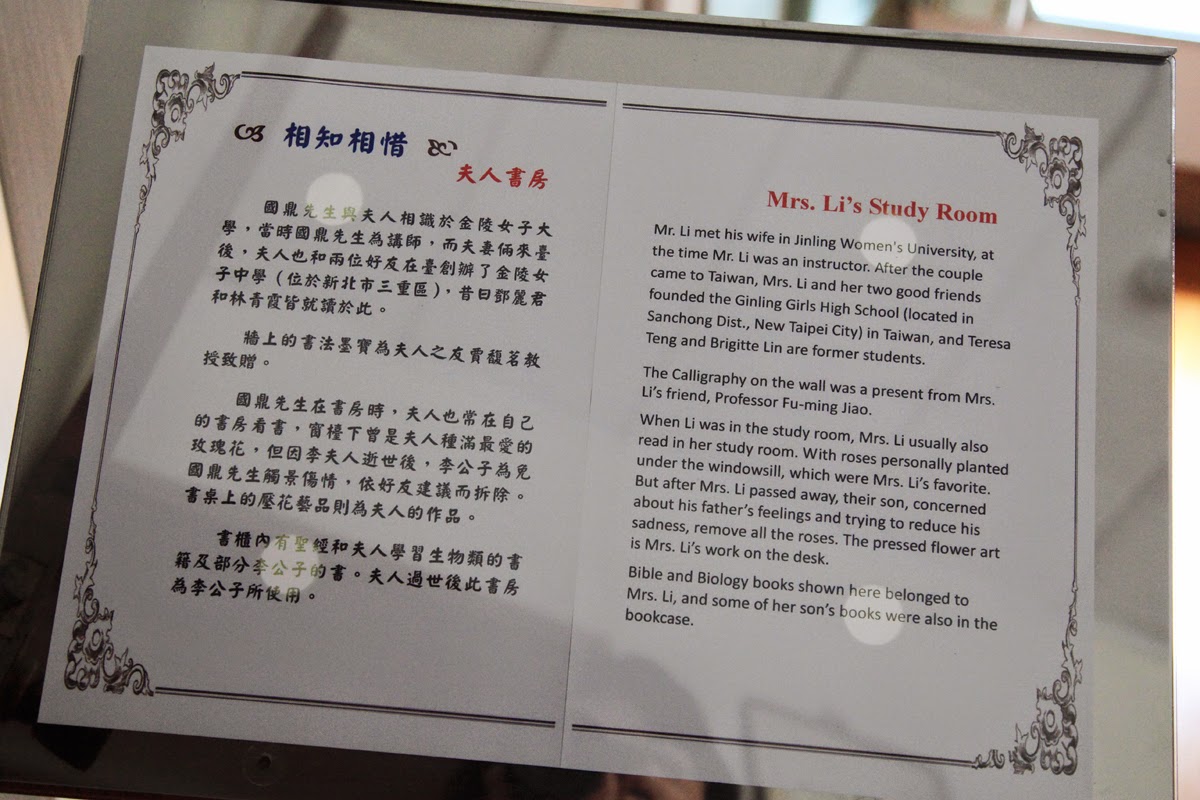 相知相惜
夫人書房
國鼎先生與夫人相識於金陵女子大
學，當時國鼎先生為講師，而夫妻倆來臺
後，夫人也和兩位好友在臺創辦了金陵女
子中學（位於新北市三重區），昔日鄧麗君
和林青霞皆就讀於此。
牆上的書法墨寶為夫人之友賈馥茗教
授致贈。
國鼎先生在書房時，夫人也常在自己
的書房看書，窗檯下曾是夫人種滿最愛的
玫瑰花，但因李夫人逝世後，李公子為免
國鼎先生觸景傷情，依好友建議而拆除。
書桌上的壓花藝品則為夫人的作品。
書櫃內有聖經和夫人學習生物類的書
籍及部分李公子的書。夫人過世後此書房
為李公子所使用。
Mrs. Li’s Study Room
Mr. Li met his wife in Jinling Women's University, at
the time Mr. Li was an instructor. After the couple
came to Taiwan, Mrs. Li and her two good friends
founded the Ginling Girls High School (located in
Sanchong Dist., New Taipei City) in Taiwan, and Teresa
Teng and Brigitte Lin are former students.
The Calligraphy on the wall was a present from Mrs.
Li’s friend, Professor Fu-ming Jiao.
When Li was in the study room, Mrs. Li usually also
read in her study room. With roses personally planted
under the windowsill, which were Mrs. Li’s favorite.
But after Mrs. Li passed away, their son, concerned
about his father’s feelings and trying to reduce his
sadness, remove all the roses. The pressed flower art
is Mrs. Li’s work on the desk.
Bible and Biology books shown here belonged to
Mrs. Li, and some of her son’s books were also in the
bookcase.